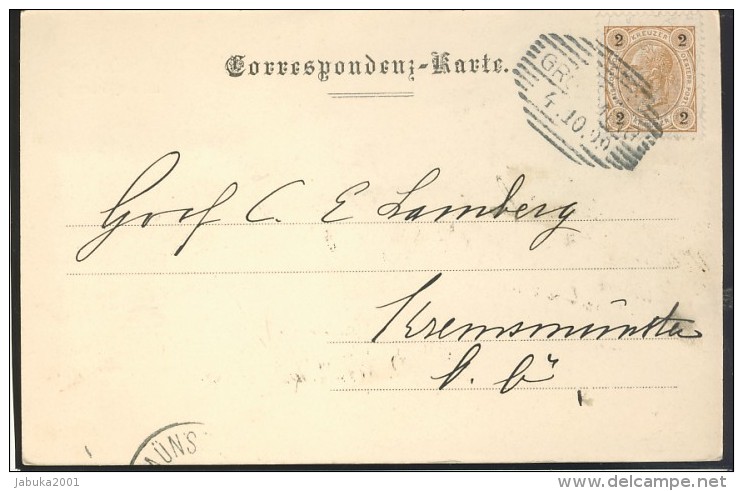 Correspondenz-Karte.
2 KREUZER 2
2 2
4.10.99
Graf C. E Lamberg
Kremsmünster
O. Ö
MÜNS
jabuka2001
delcampe.net